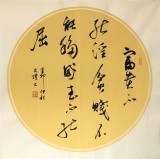 富貴不
能淫貧賤不
能移威武不能
屈